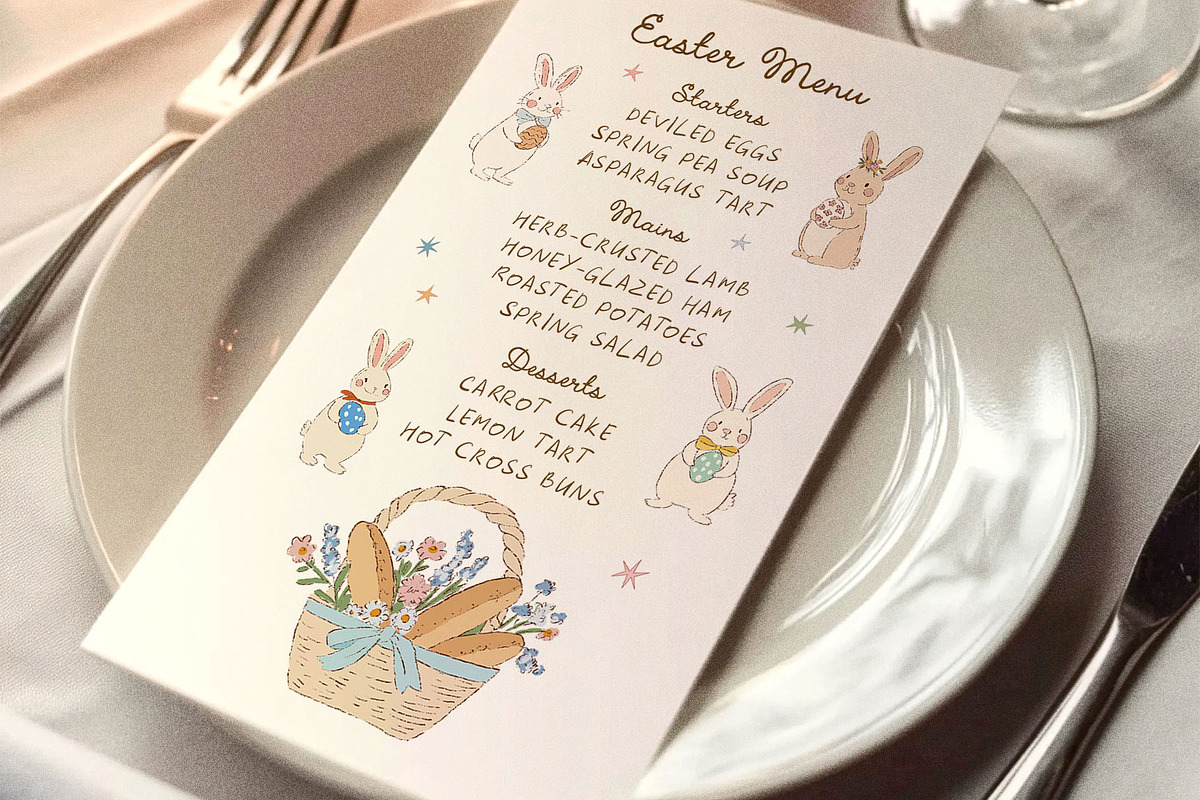 Easter Menu
Starters
DEVILED EGGS
SPRING PEA SOUP
ASPARAGUS TART
Mains
HERB-CRUSTED LAMB
HONEY-GLAZED HAM
ROASTED POTATOES
SPRING SALAD
Desserts
CARROT CAKE
LEMON TART
HOT CROSS BUNS